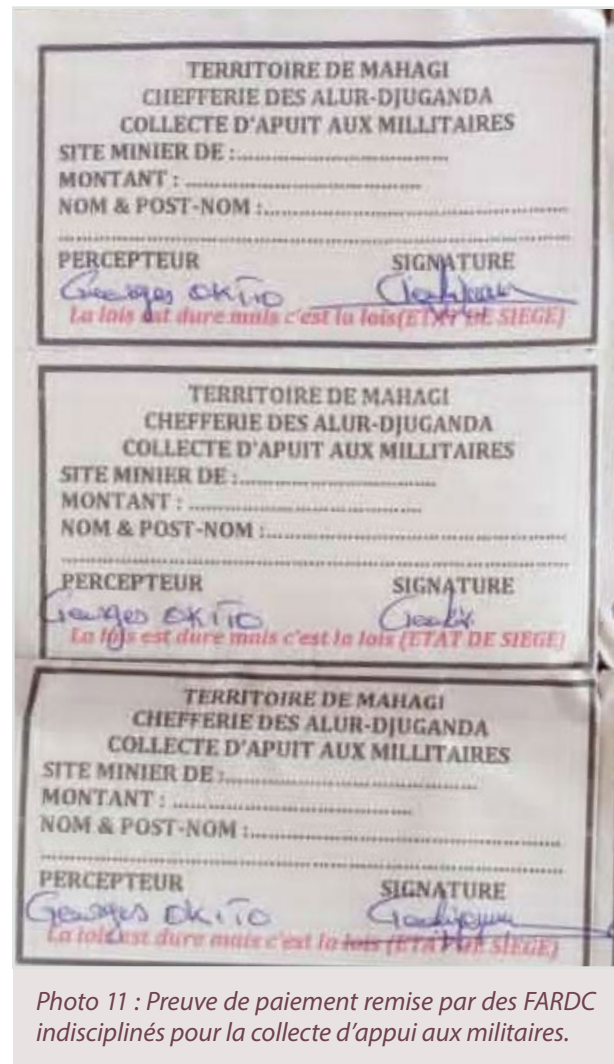 TERRITOIRE DE MAHAGI
CHEFFERIE DES ALUR-DJUGANDA
COLLECTE D'APUIT AUX MILLITAIRES
SITE MINIER DE :................................................
MONTANT : ................................................
NOM & POST-NOM :................................................
................................................
PERCEPTEUR SIGNATURE
Georges OKITO
La lois est dure mais c'est la lois(ETAT DE SIEGE)
TERRITOIRE DE MAHAGI
CHEFFERIE DES ALUR-DJUGANDA
COLLECTE D'APUIT AUX MILLITAIRES
SITE MINIER DE :................................................
MONTANT : ................................................
NOM & POST-NOM :................................................
................................................
PERCEPTEUR SIGNATURE
Georges OKITO
La lois est dure mais c'est la lois (ETAT DE SIEGE)
TERRITOIRE DE MAHAGI
CHEFFERIE DES ALUR-DJUGANDA
COLLECTE D'APUIT AUX MILLITAIRES
SITE MINIER DE :................................................
MONTANT : ................................................
NOM & POST-NOM :................................................
................................................
PERCEPTEUR SIGNATURE
Georges OKITO
La lois est dure mais c'est la lois (ETAT DE SIEGE)
Photo 11 : Preuve de paiement remise par des FARDC
indisciplinés pour la collecte d'appui aux militaires.